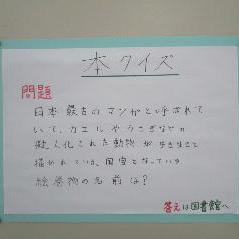 本クイズ
問題
日本最古のマンガと呼ばれて
いて、カエルやうさぎなどの
擬人化された動物が生き生きと
描かれている、国宝となっている
絵巻物の名前は？
答えは図書館へ